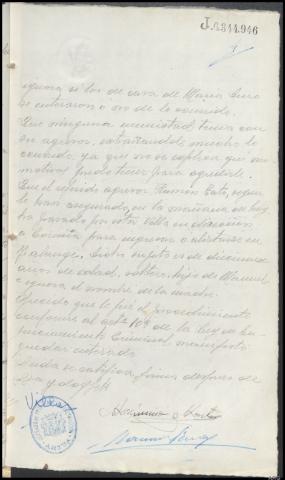 J.6344.946
1
ignora si los de casa de María Luro
se enteraron o no de lo ocurrido.
Que ninguna enemistad tenía con
su agresor, extrañándole mucho lo
ocurrido, ya que no se explica que
motivos pudo tener para agredirle.
Que el referido agresor Ramón, según
le han asegurado, en la mañana de hoy
ha pasado por esta Villa en dirección
a Coruña para ingresar o alistarse en
Falange. Dicho sujeto es de diecinueve
años de edad, soltero, hijo de Manuel
e ignora el nombre de la madre.
Ofrecido que le fué el procedimiento
conforme al artº 109 de la Ley de En-
juiciamiento Criminal manifestó
quedar enterado.
Leída se ratifica, firma después de
S.Sª y doy fé